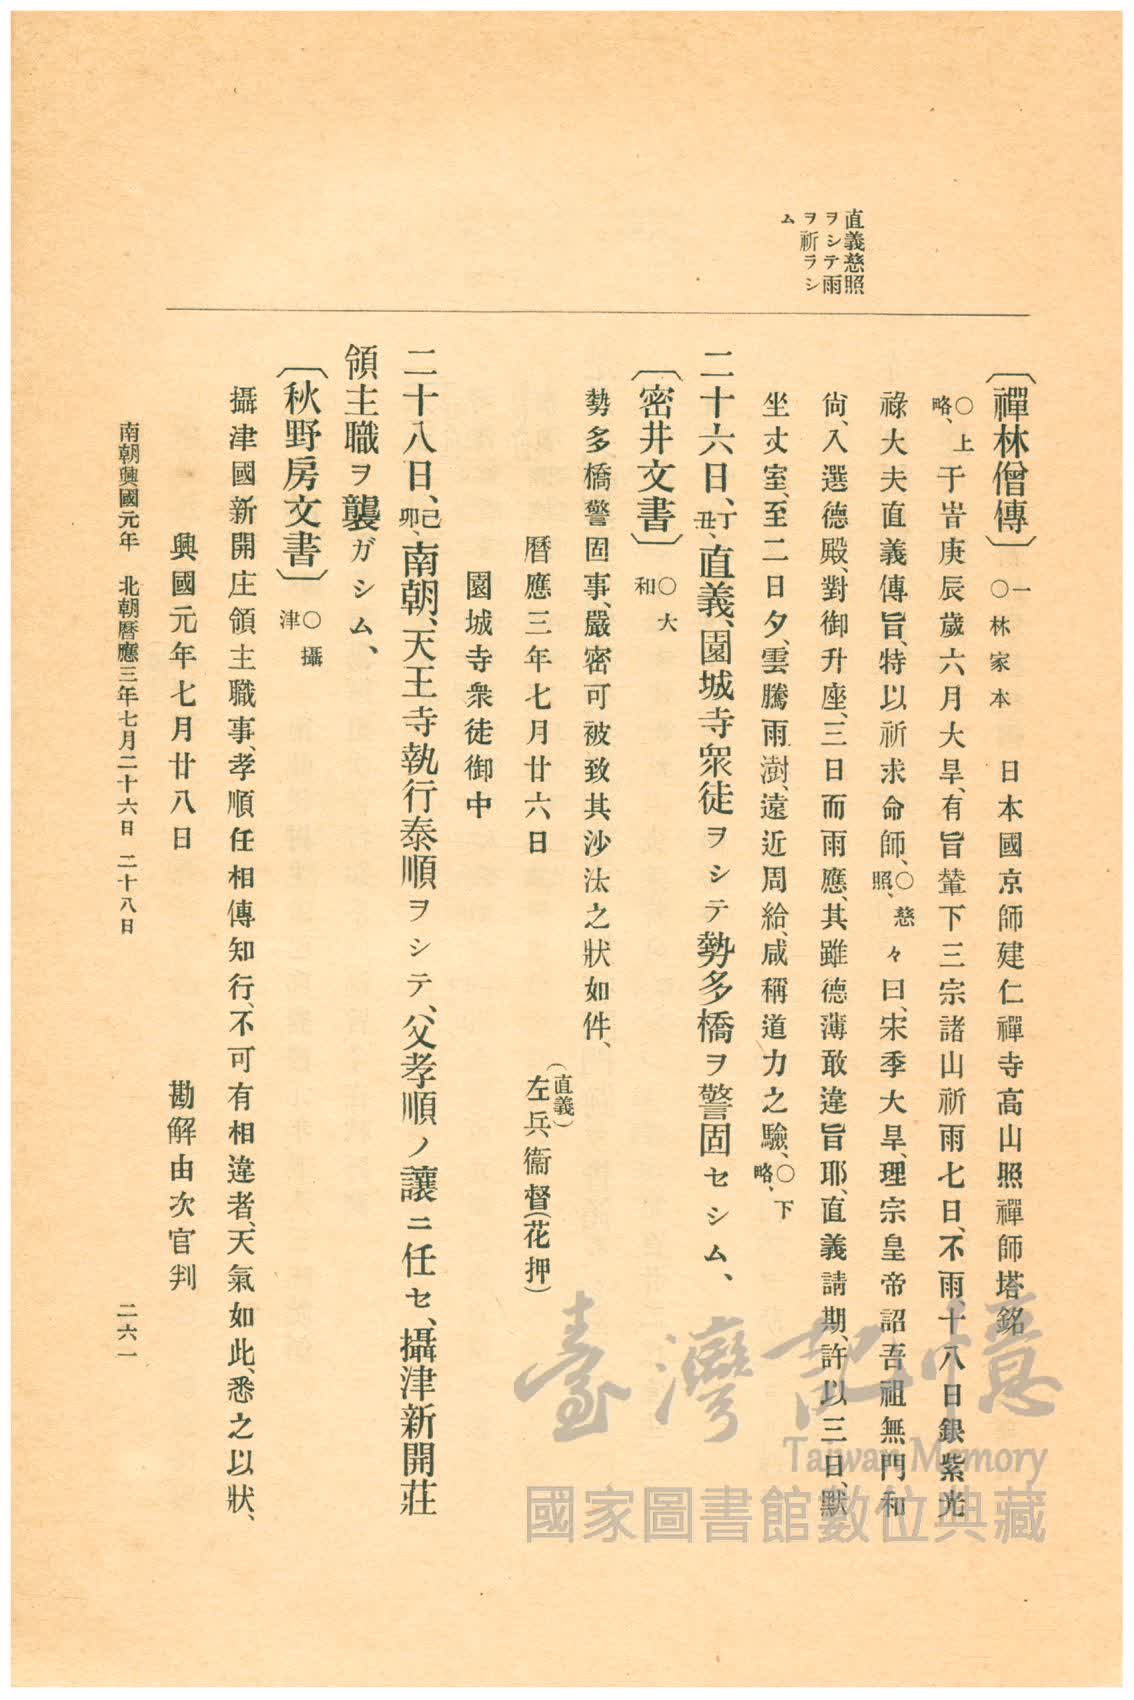 直義慈照
ヲシテ雨
ヲ祈ラシ
ム
〔禪林僧傳〕一 ○林家本 日本國京師建仁禪寺高山照禪師塔銘
○上略、于旹庚辰歲六月大旱、有旨輦下三宗諸山祈雨七日、不雨十八日、銀紫光
祿大夫直義傳旨、特以祈求命師、○慈照、々曰、宋季大旱、理宗皇帝詔吾祖無門和
尙、入選德殿、對御升座、三日而雨應、其雖德薄敢違旨耶、直義請期、許以三日、默
坐丈室、至二日夕、雲騰雨澍、遠近周給、咸稱道力之驗、○下略、
二十六日、丁丑、直義、園城寺衆徒ヲシテ勢多橋ヲ警固セシム、
〔密井文書〕○大和
勢多橋警固事、嚴密可被致其沙汰之狀如件、
曆應三年七月廿六日 左兵衞督(花押)
(直義)
園城寺衆徒御中
二十八日、己卯、南朝、天王寺執行泰順ヲシテ、父孝順ノ讓ニ任セ、攝津新開莊
領主職ヲ襲ガシム、
〔秋野房文書〕○攝津
攝津國新開庄領主職事、孝順任相傳知行、不可有相違者、天氣如此、悉之以狀、
興國元年七月廿八日 勘解由次官判
南朝興國元年 北朝曆應三年七月二十六日 二十八日 二六一
臺灣記憶
Taiwan Memory
國家圖書館數位典藏